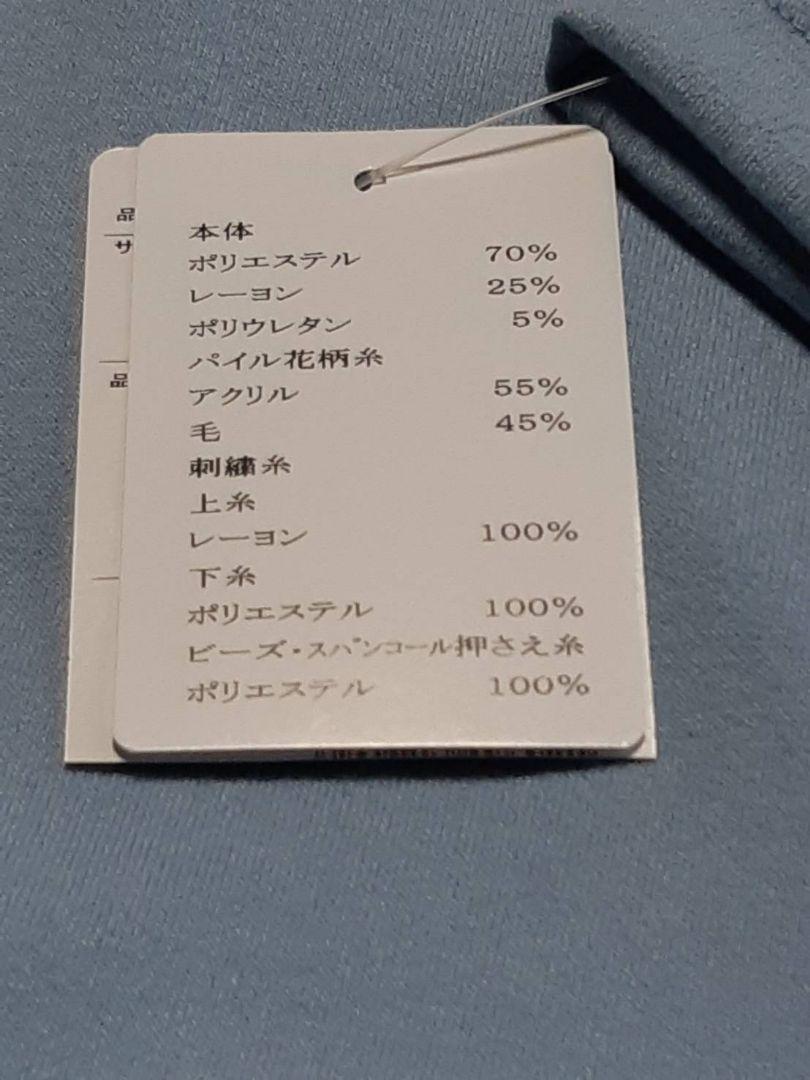 本体
ポリエステル 70%
レーヨン 25%
ポリウレタン 5%
パイル花柄糸
アクリル 55%
毛 45%
刺繍糸
上糸
レーヨン 100%
下糸
ポリエステル 100%
ビーズ・スパンコール押さえ糸
ポリエステル 100%
品
サ
品